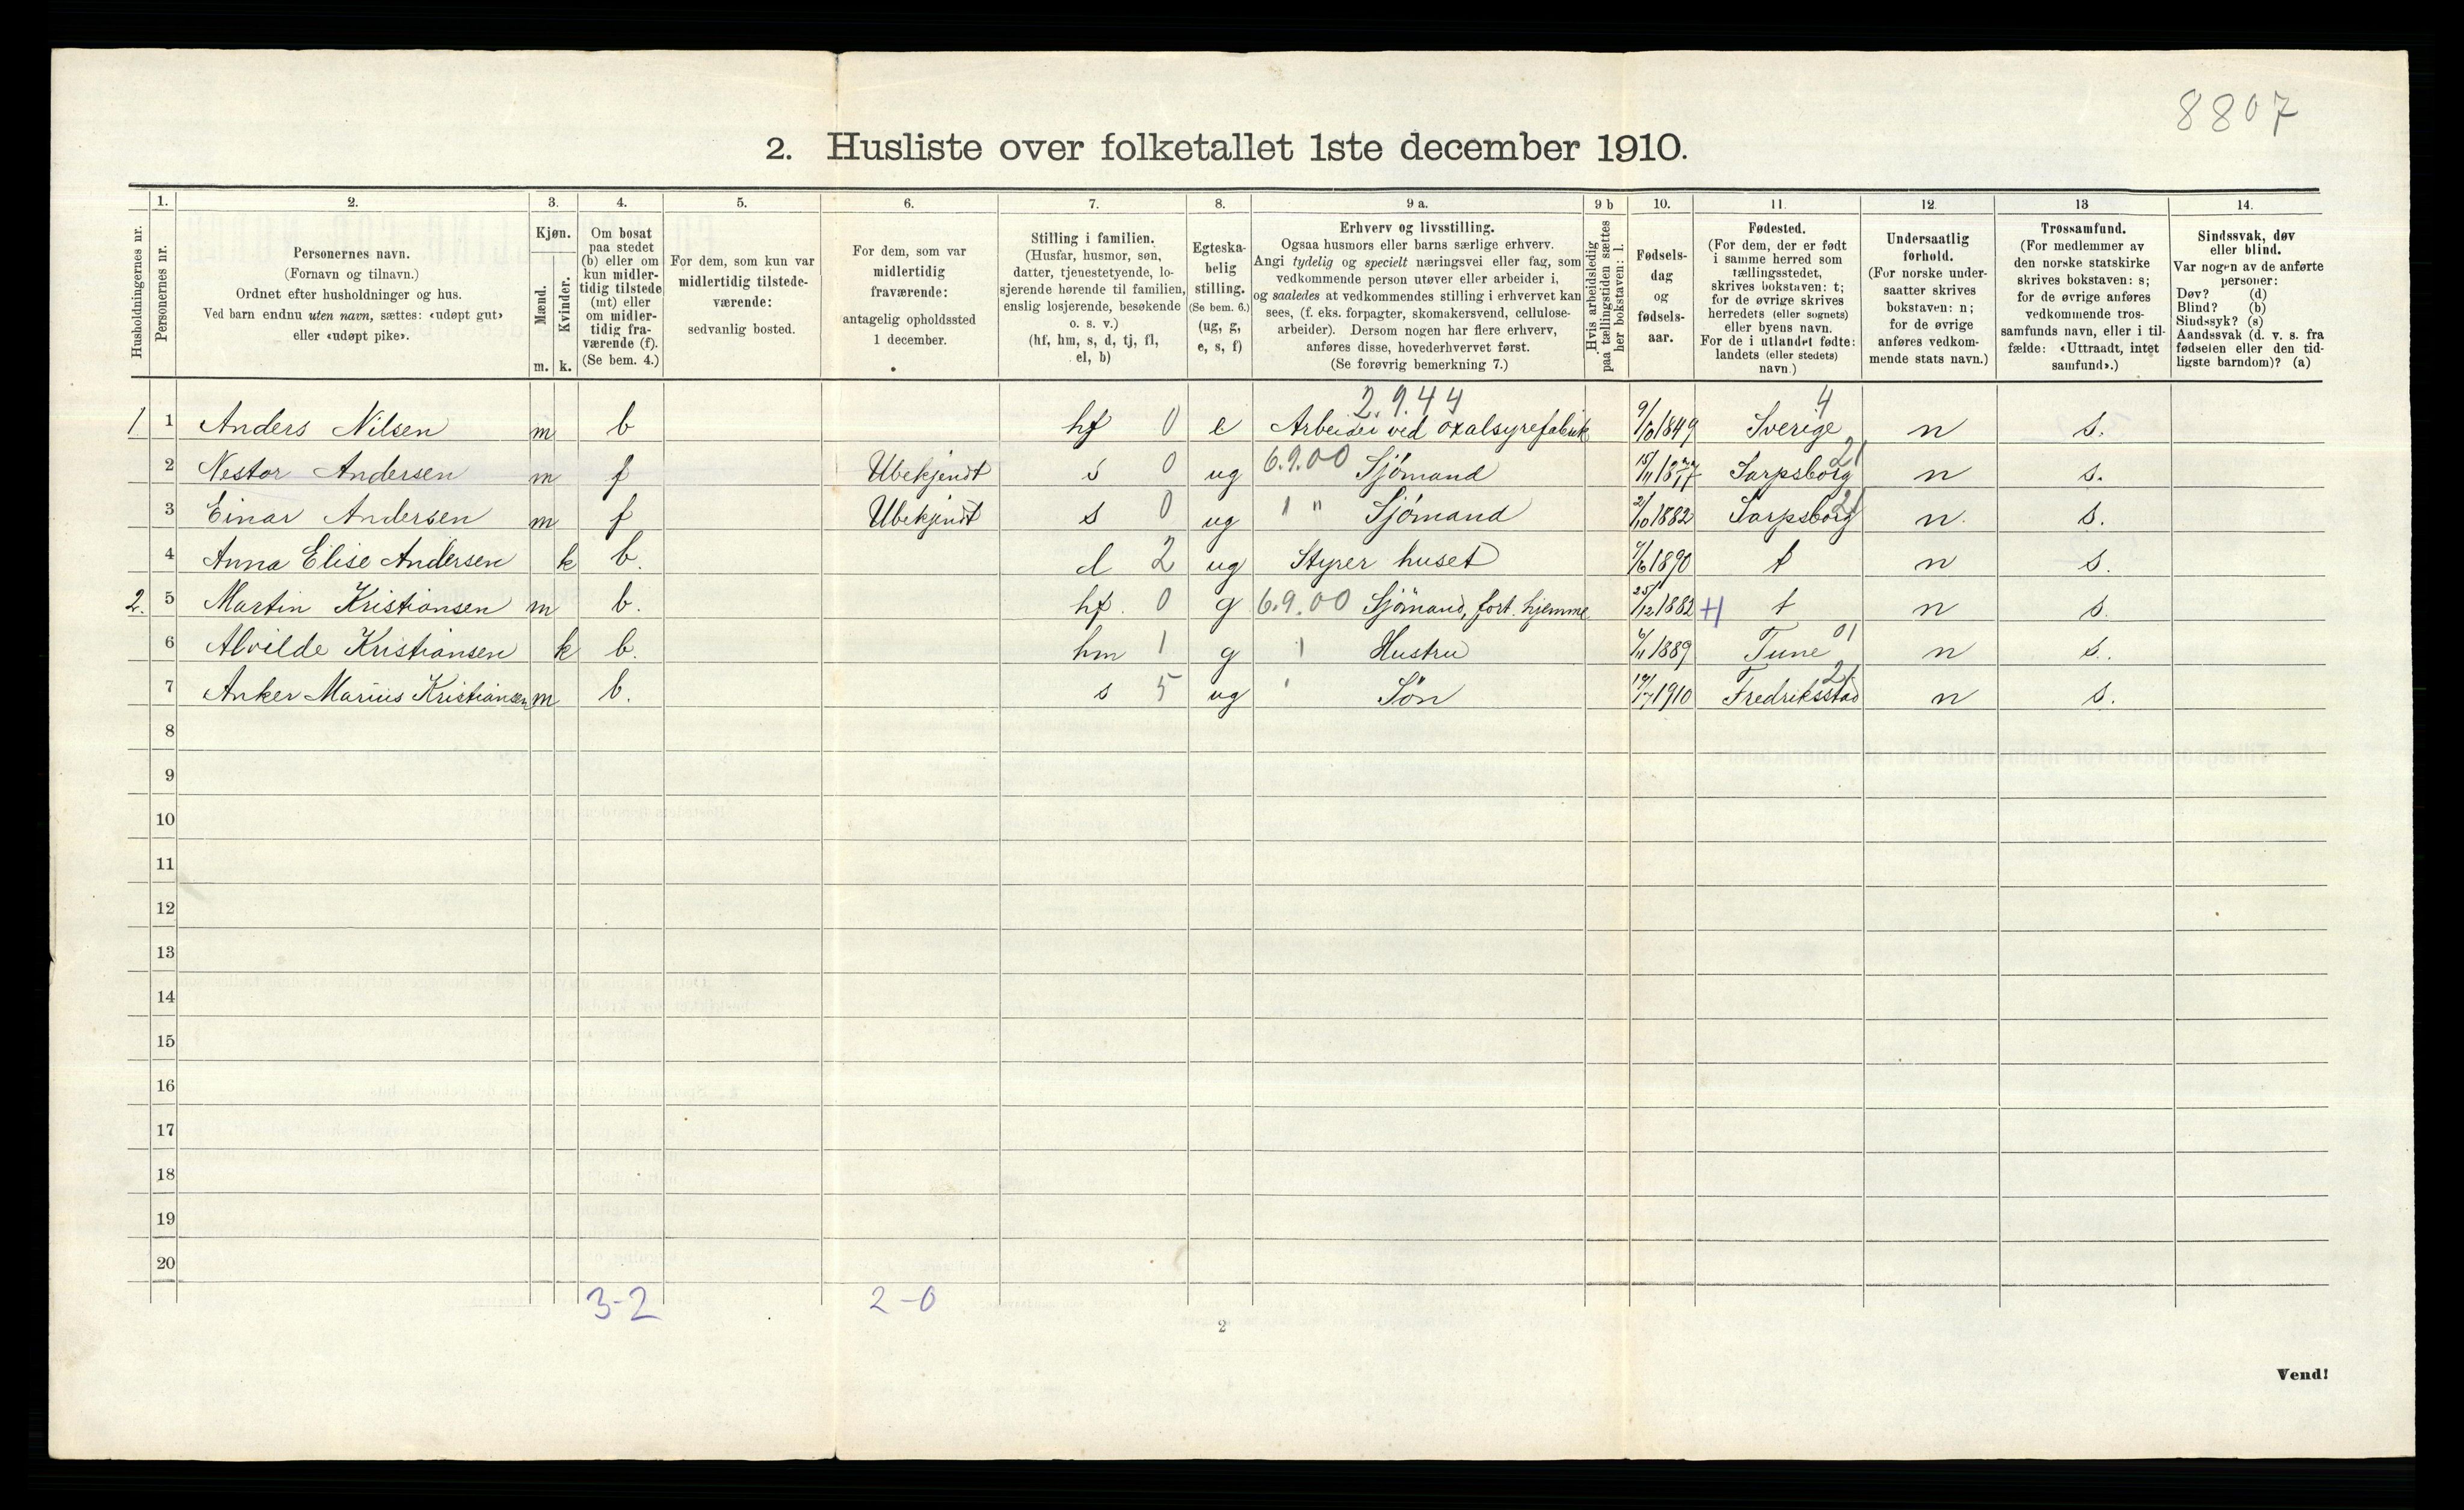 8807
2. Husliste over folketallet 1ste december 1910.
1. 2. 3. 4. 5. 6. 7. 8. 9 a. 9 b 10. 11. 12. 13 14.
Husholdningernes nr.
Personernes nr.
Personernes navn.
(Fornavn og tilnavn.)
Ordnet efter husholdninger og hus.
Ved barn endnu uten navn, sættes: «udøpt gut»
eller «udøpt pike».
Kjøn.
Mænd.
m.
Kvinder.
k.
Om bosat
paa stedet
(b) eller om
kun midler-
tidig tilstede
(mt) eller
om midler-
tidig fra-
værende (f).
(Se bem. 4.)
For dem, som kun var
midlertidig tilstede-
værende:
sedvanlig bosted.
For dem, som var
midlertidig
fraværende:
antagelig opholdssted
1 december.
Stilling i familien.
(Husfar, husmor, søn,
datter, tjenestetyende, lo-
sjerende hørende til familien,
enslig losjerende, besøkende
o. s. v.)
(hf, hm, s, d, tj, fl,
el, b)
Egteska-
belig
stilling.
(Se bem. 6.)
(ug, g,
e, s, f)
Erhverv og livsstilling.
Ogsaa husmors eller barns særlige erhverv.
Angi tydelig og specielt næringsvei eller fag, som
vedkommende person utøver eller arbeider i,
og saaledes at vedkommendes stilling i erhvervet kan
sees, (f. eks. forpagter, skomakersvend, cellulose-
arbeider). Dersom nogen har flere erhverv,
anføres disse, hovederhvervet først.
(Se forøvrig bemerkning 7.)
Hvis arbeidsledig
paa tællingstiden sættes
her bokstaven: l.
Fødsels-
dag
og
fødsels-
aar.
Fødested.
(For dem, der er født
i samme herred som
tællingsstedet,
skrives bokstaven: t;
for de øvrige skrives
herredets (eller sognets)
eller byens navn.
For de i utlandet fødte:
landets (eller stedets)
navn.)
Undersaatlig
forhold.
(For norske under-
saatter skrives
bokstaven: n;
for de øvrige
anføres vedkom-
mende stats navn.)
Trossamfund.
(For medlemmer av
den norske statskirke
skrives bokstaven: s;
for de øvrige anføres
vedkommende tros-
samfunds navn, eller i til-
fælde: «Uttraadt, intet
samfund».)
Sindssvak, døv
eller blind.
Var nogen av de anførte
personer:
Døv? (d)
Blind? (b)
Sindssyk? (s)
Aandssvak (d. v. s. fra
fødselen eller den tid-
ligste barndom)? (a)
2.9.44 4
1 1 Anders Nilsen m b hf 0 e Arbeider ved oxalsyrefabrik 1849 Sverige n s.
2 Nestor Andersen m f Ubekjendt s 0 ug 6.9.00 Sjömand 15/11 1877 Sarpsborg 21 n s.
3 Einar Andersen m f Ubekjendt s 0 ug 1 " Sjömand 2/10 1882 Sarpsborg 21 n. s.
4 Anna Elise Andersen k b. d 2 ug Styrer huset 1890 t n s.
2. 5 Martin Kristiansen m b. hf. 0 g 6.9.00 Sjömand, fort. hjemme 25/12 1882 t n s.
6 Alvilde Kristiansen k b. hm 1 g 1 Hustru 6/11 1889 Tune 01 n s.
7 Anker Marius Kristiansen m b. s 5 ug ' Sön 1910 Fredriksstad 21 n s.
8
9
10
11
12
13
14
15
16
17
18
19
20
3-2 2-0
2
Vend!